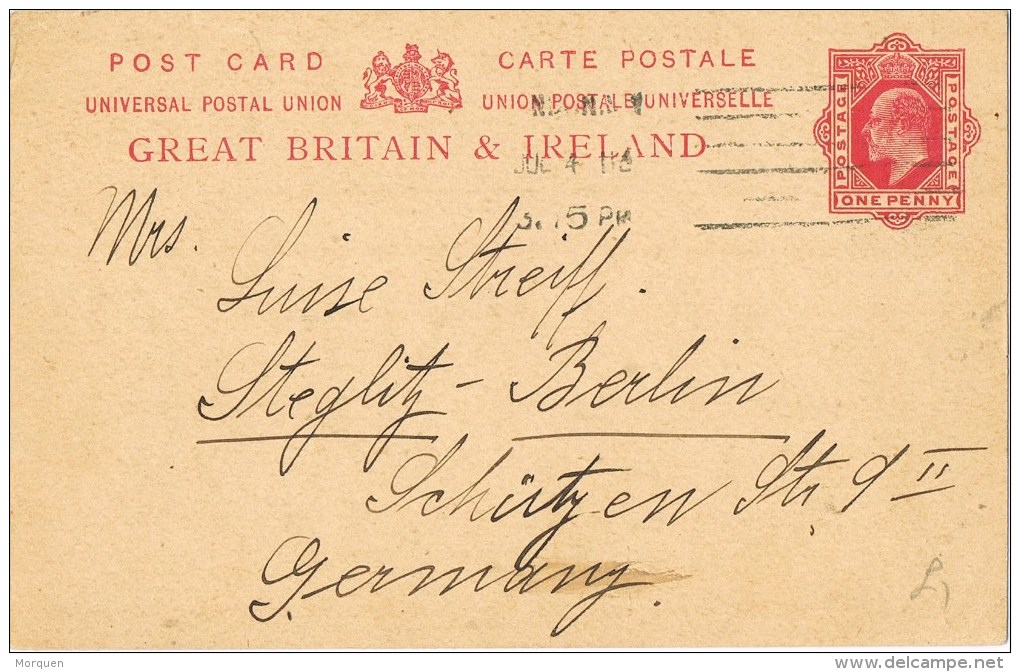 POST CARD
CARTE POSTALE
UNIVERSAL POSTAL UNION
UNION POSTALE UNIVERSELLE
GREAT BRITAIN & IRELAND
POSTAGE
POSTAGE
ONE PENNY
JUL 4
PM
Mrs.
Luise Streiff.
Steglitz-Berlin
Schützen Str 9 II
Germany.
Morquen
www.delcampe.net